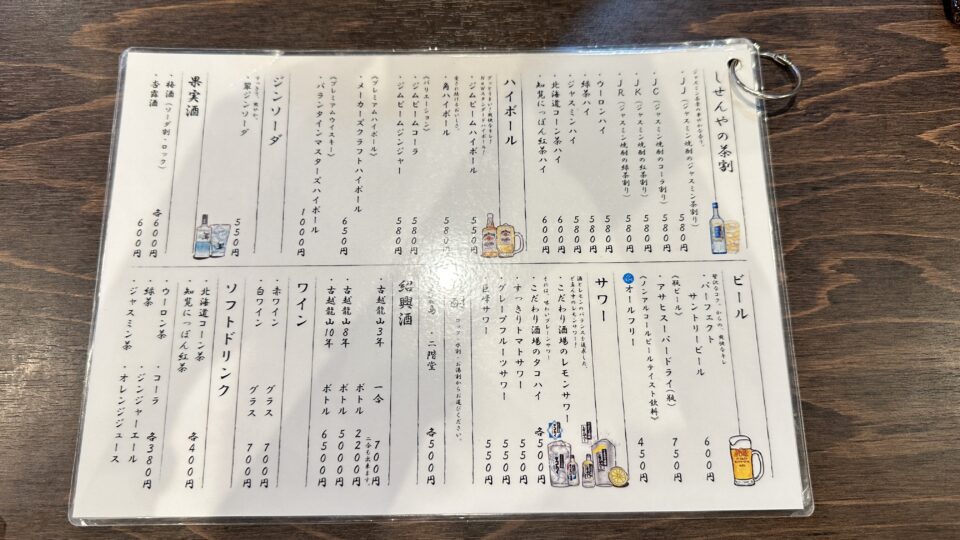 しせんやの茶割
ジャスミン茶葉の華やかな香り。
・JJ(ジャスミン焼酎のジャスミン茶割り) 580円
・JC(ジャスミン焼酎のコーラ割り) 580円
・JK(ジャスミン焼酎の紅茶割り) 580円
・JR(ジャスミン焼酎の緑茶割り) 580円
・ウーロンハイ 580円
・緑茶ハイ 580円
・ジャスミンハイ 580円
・北海道コーン茶ハイ 600円
・知覧にっぽん紅茶ハイ 600円
ハイボール
・ジムビームハイボール 550円
・角ハイボール 580円
(バリエーション)
・ジムビームコーラ 580円
・ジムビームジンジャー 580円
(プレミアムハイボール)
・メーカーズクラフトハイボール 650円
(プレミアムウイスキー)
・バランタインマスターズハイボール 1000円
ジンソーダ
すっきり、爽やか。
・翠ジンソーダ 550円
果実酒
・梅酒(ソーダ割・ロック) 各600円
・杏露酒 600円
ビール
贅沢なコク、からの、爽快なキレ
・パーフェクト
サントリービール 600円
(瓶ビール)
・アサヒスーパードライ(瓶) 750円
(ノンアルコールビールテイスト飲料)
オールフリー 450円
サワー
酒とレモンのバランスを追求した、
・こだわり酒場のレモンサワー
・こだわり酒場のタコハイ 各500円
・すっきりトマトサワー 550円
・グレープフルーツサワー 550円
・巨峰サワー 550円
酎
ロック・水割・お湯割からお選びください。
・二階堂 各500円
紹興酒
・古越龍山3年 一合 700円
二合も出来ます。
ボトル 2200円
・古越龍山8年 ボトル 5000円
・古越龍山10年 ボトル 6500円
ワイン
・赤ワイン グラス 700円
・白ワイン グラス 700円
ソフトドリンク
・北海道コーン茶
・知覧にっぽん紅茶 各400円
・ウーロン茶 ・コーラ 各380円
・緑茶 ・ジンジャーエール
・ジャスミン茶 ・オレンジジュース